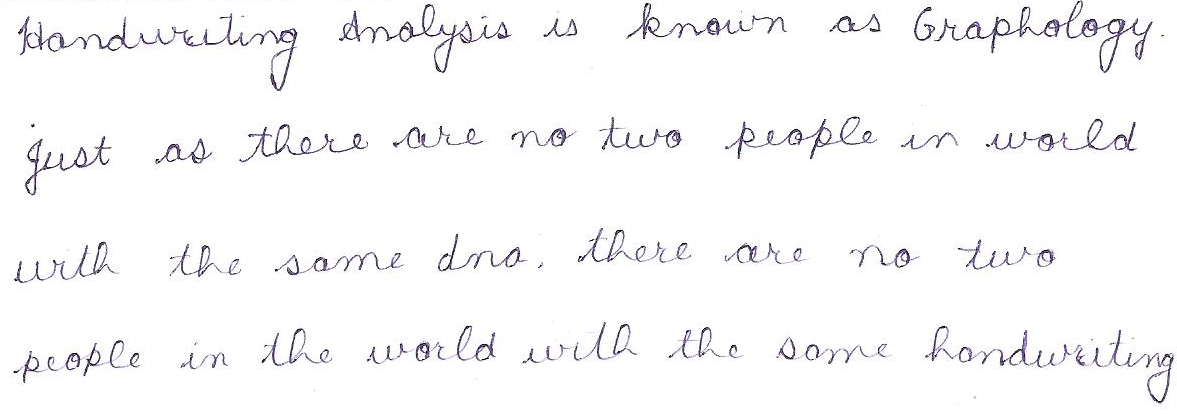 Handwriting Analysis is known as Graphology.
just as there are no two people in world
with the same dna, there are no two
people in the world with the same handwriting